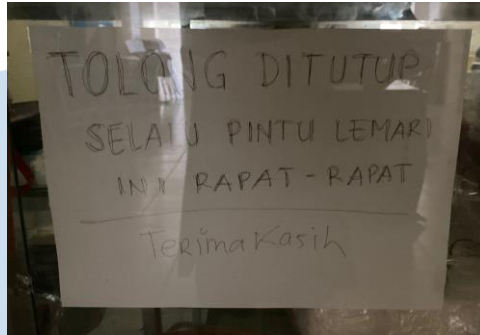 TOLONG DITUTUP
SELALU PINTU LEMARI
INI RAPAT-RAPAT
Terima Kasih